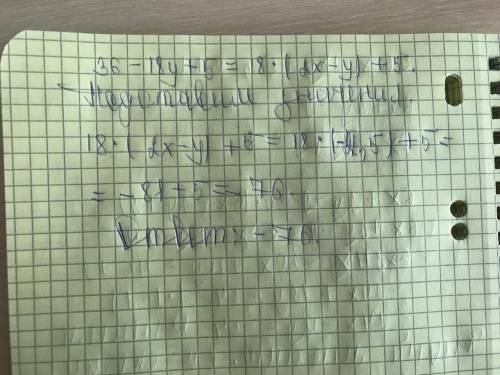 36 - 18y + 5 = 18 · (2x - y) + 5.
Подставим значения.
18 · (2x - y) + 5 = 18 · (-4,5) + 5 =
= -81 + 5 = -76.
Ответ: -76.